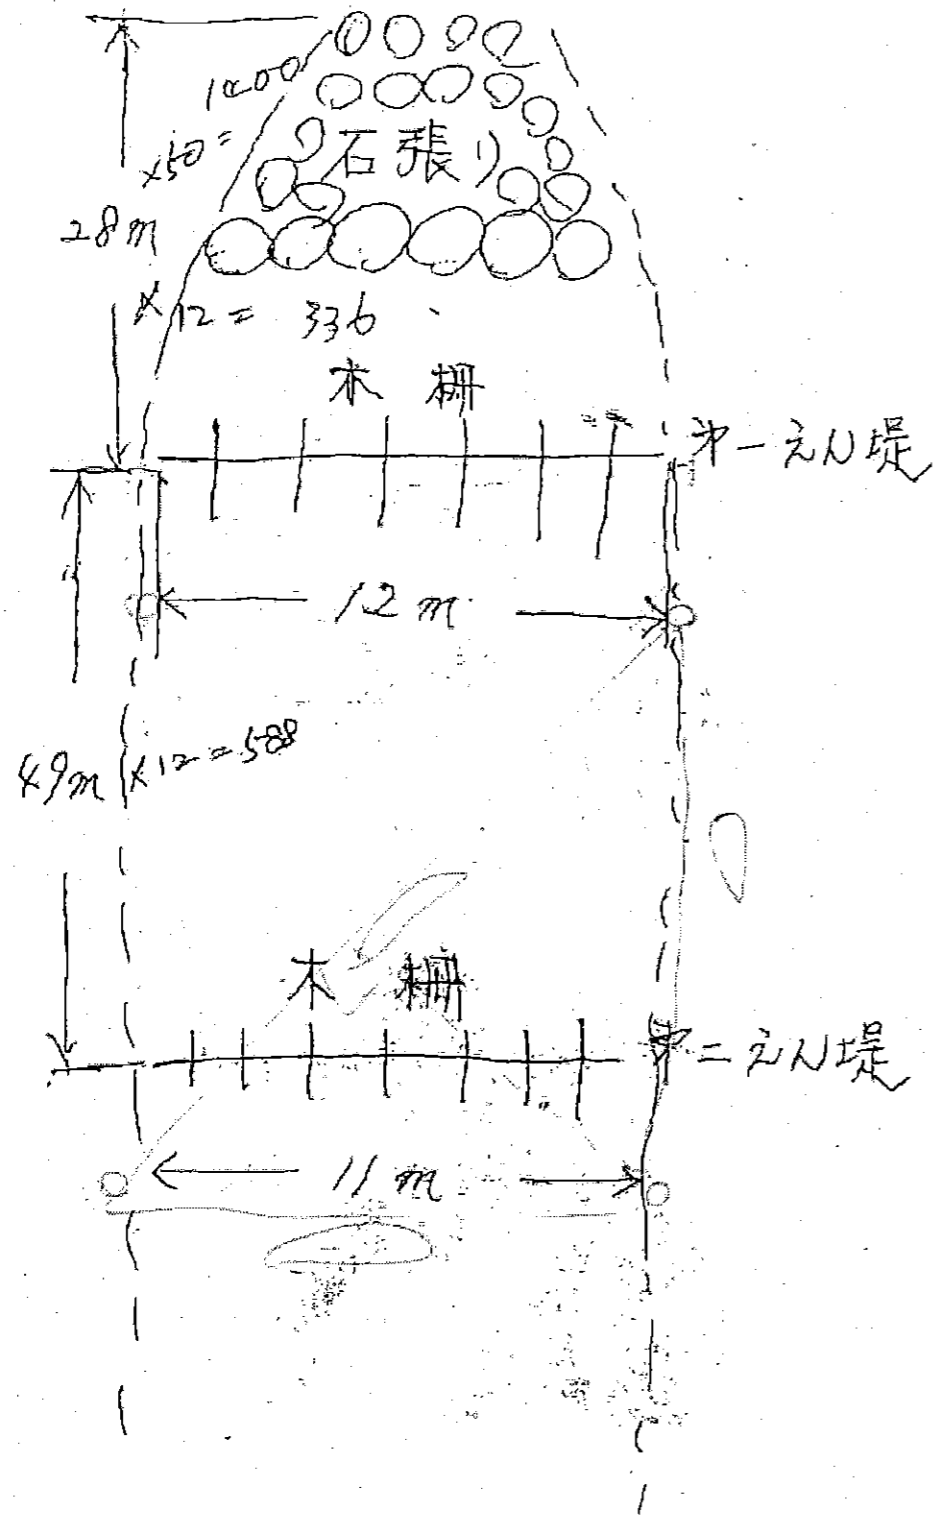 1400
×50=
石張り
28m
×12= 336
木柵
第一えん堤
12m
49m ×12=588
木柵
第二えん堤
11m